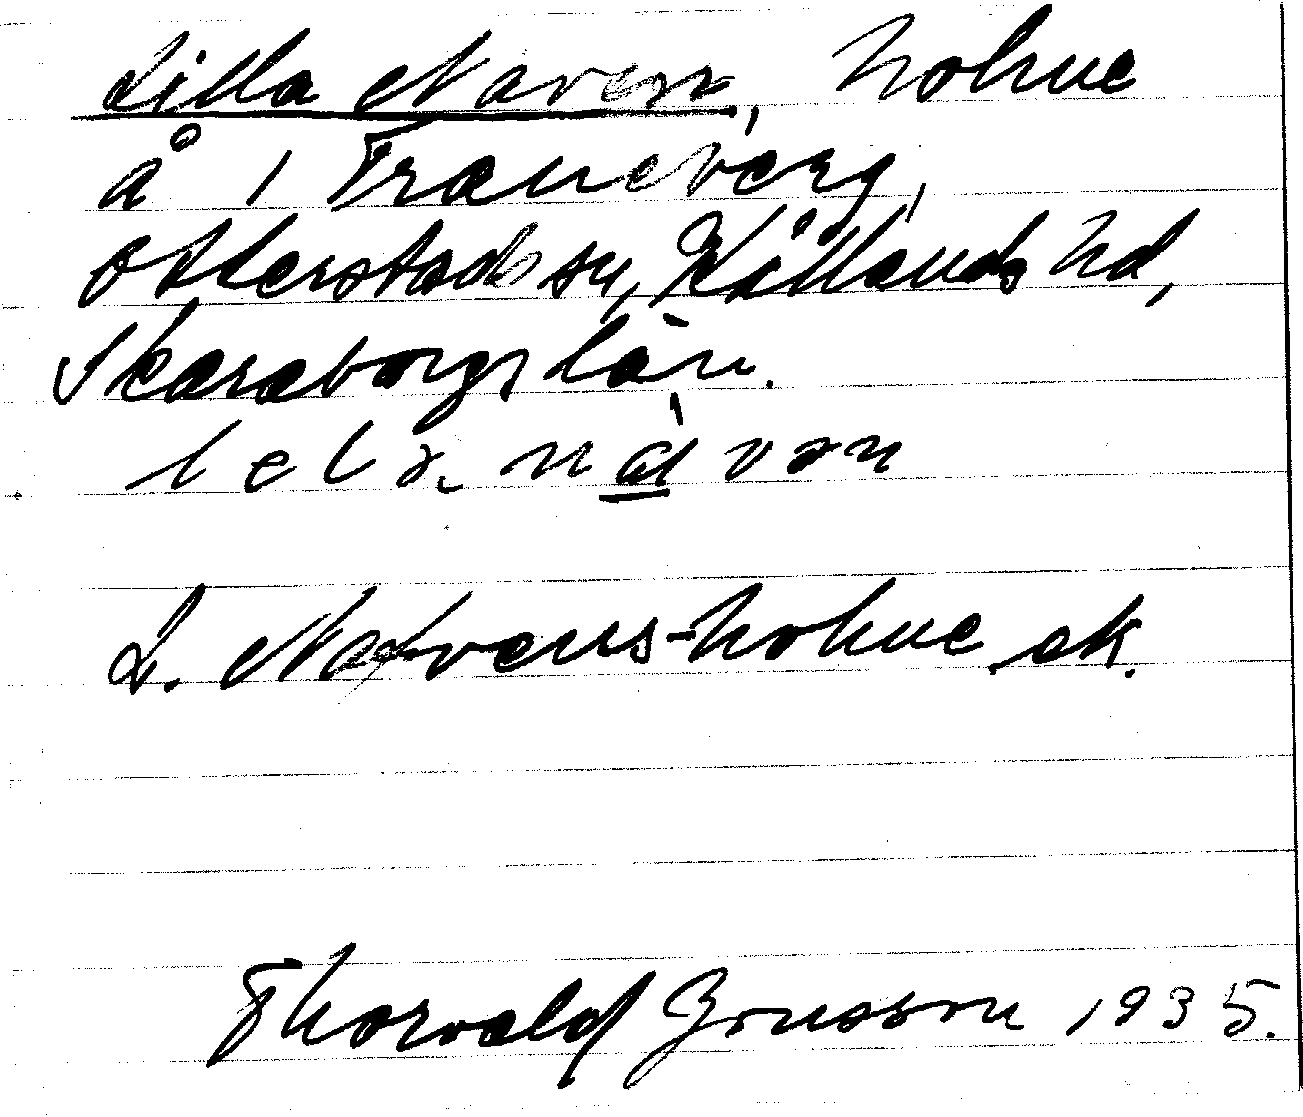 Lilla Naven, holme
å 1 Traneberg,
Otterstads sn, Kållands hd,
Skaraborgs län.
navan
L. Navens-holme ek.
Thorvald Jonsson 1935.